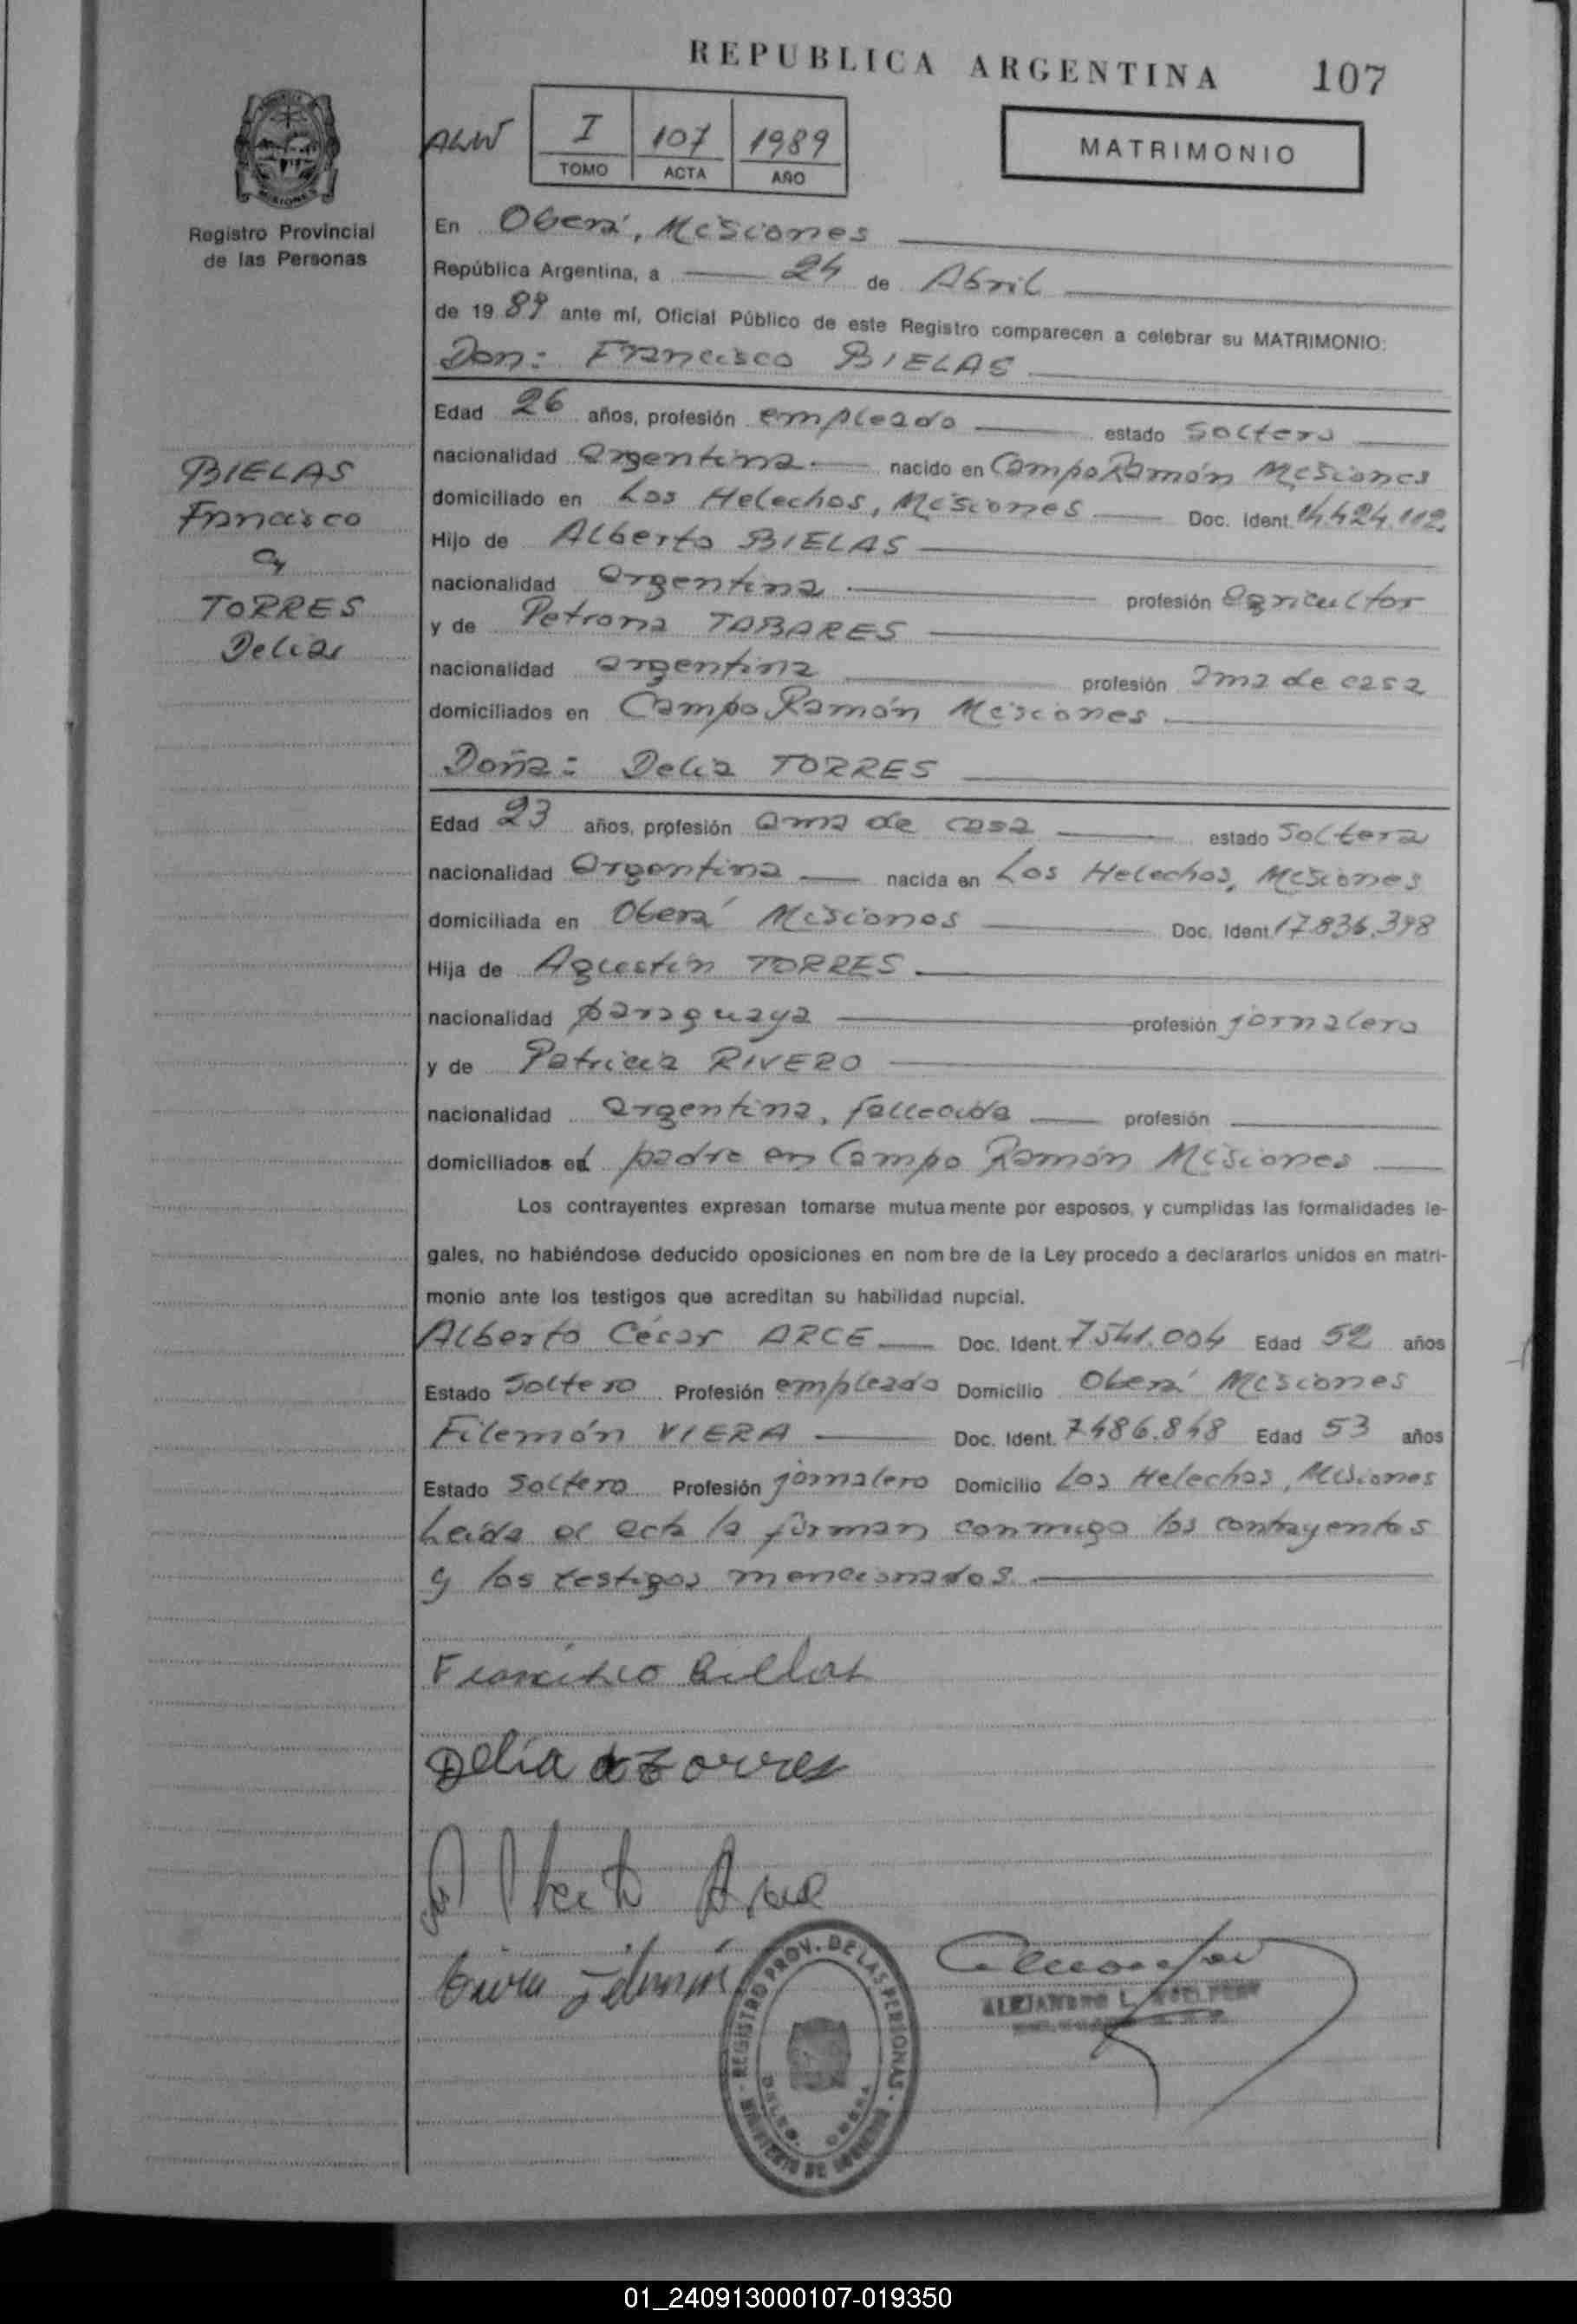 REPUBLICA ARGENTINA 107
ALW I 107 1989
TOMO ACTA AÑO
MATRIMONIO
Registro Provincial
de las Personas
En Oberá, Misiones
República Argentina, a 24 de Abril
de 1989 ante mí, Oficial Público de este Registro comparecen a celebrar su MATRIMONIO:
Don: Francisco BIELAS
Edad 26 años, profesión empleado estado Soltero
nacionalidad Argentina nacido en Campo Ramón Misiones
domiciliado en Los Helechos, Misiones Doc. Ident. 14.424.112
Hijo de Alberto BIELAS
nacionalidad argentina profesión agricultor
y de Petrona TABARES
nacionalidad argentina profesión ama de casa
domiciliados en Campo Ramón Misiones
BIELAS
Francisco
y
TORRES
Delia
Doña: Delia TORRES
Edad 23 años, profesión ama de casa estado Soltera
nacionalidad Argentina nacida en Los Helechos, Misiones
domiciliada en Oberá Misiones Doc. Ident. 17.836.398
Hija de Agustín TORRES
nacionalidad paraguaya profesión jornalero
y de Patricia RIVERO
nacionalidad argentina, fallecida profesión
domiciliados el padre en Campo Ramón Misiones
Los contrayentes expresan tomarse mutuamente por esposos, y cumplidas las formalidades le-
gales, no habiéndose deducido oposiciones en nombre de la Ley procedo a declararlos unidos en matri-
monio ante los testigos que acreditan su habilidad nupcial.
Alberto César ARCE Doc. Ident. 7.541.004 Edad 52 años
Estado Soltero Profesión empleado Domicilio Oberá Misiones
Filemón VIERA Doc. Ident. 7.486.848 Edad 53 años
Estado Soltero Profesión jornalero Domicilio Los Helechos, Misiones
Leida el acta la firman conmigo los contrayentes
y los testigos mencionados
Francisco
Delia Torres
Alberto Arce
ALEJANDRO L.
REGISTRO PROV. DE LAS PERSONAS
MINISTERIO DE GOBIERNO
OBERA
01_240913000107-019350